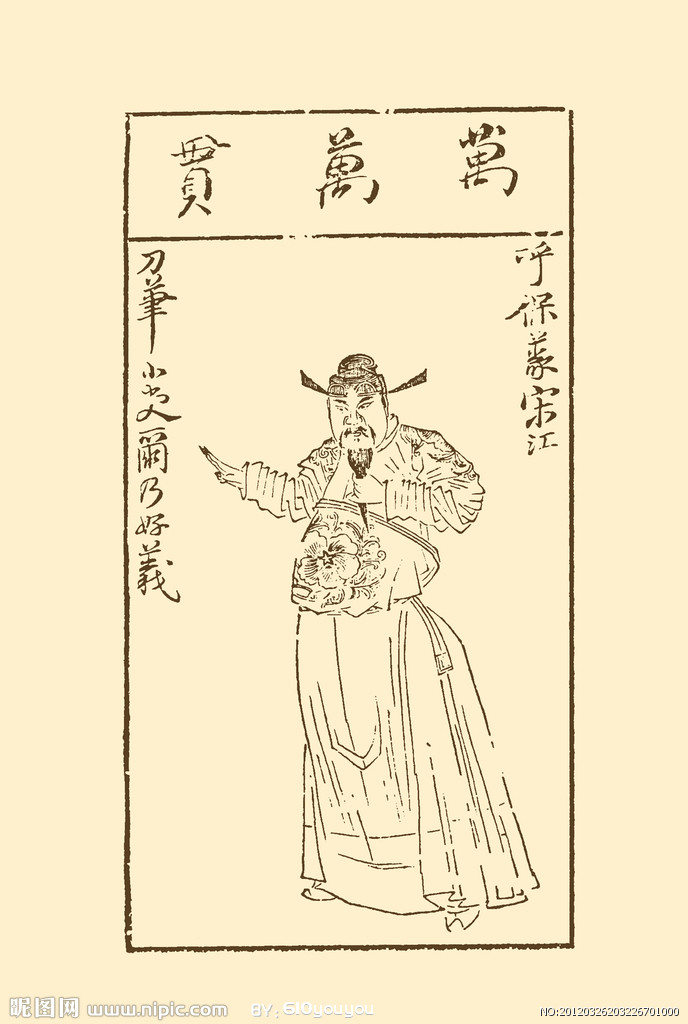 萬萬貫
呼保義宋江
刀筆小吏爾乃好義
昵图网 www.nipic.com
BY: 610youyou
NO:20120326203226701000